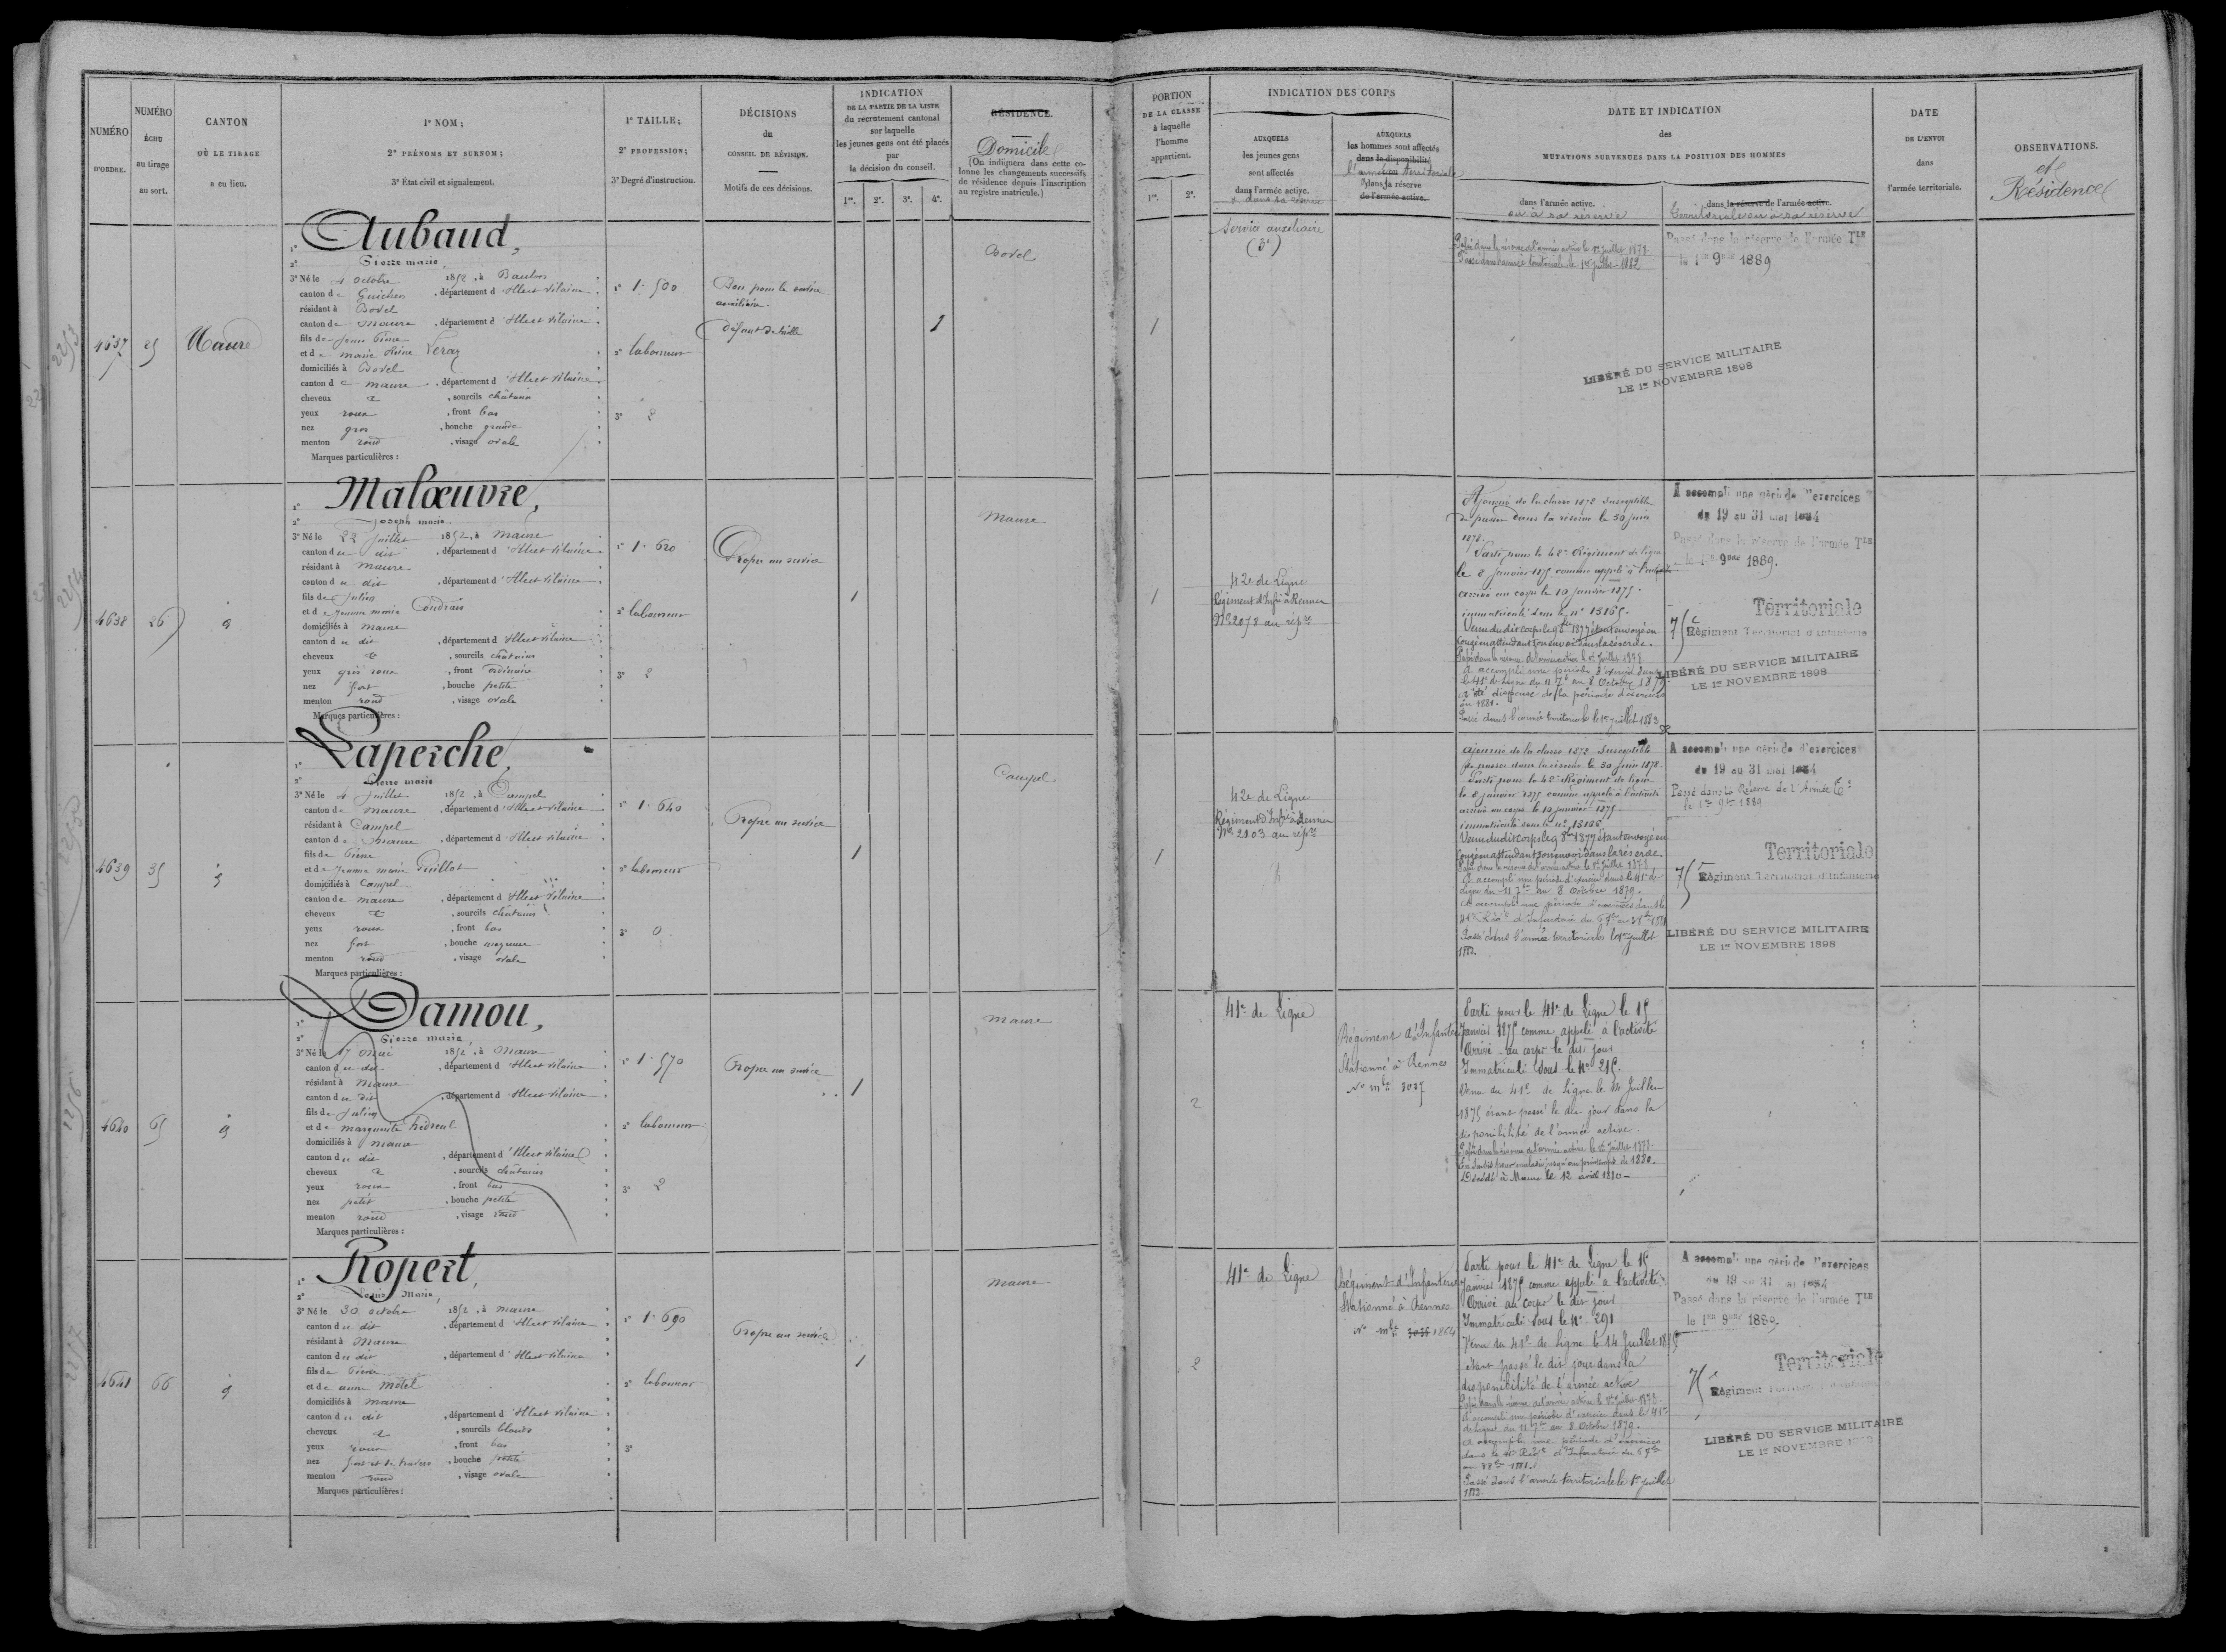 NUMÉRO
D'ORDRE.
NUMÉRO
ÉCHU
au tirage
au sort.
CANTON
OÙ LE TIRAGE
a eu lieu.
1° NOM;
2° PRÉNOMS ET SURNOM;
3° État civil et signalement.
1° TAILLE;
2° PROFESSION;
3° Degré d'instruction.
DÉCISIONS
du
CONSEIL DE RÉVISION.
Motifs de ces décisions.
INDICATION
DE LA PARTIE DE LA LISTE
du recrutement cantonal
sur laquelle
les jeunes gens ont été placés
par
la décision du conseil.
1re. 2e. 3e. 4e.
RÉSIDENCE.
Domicile
(On indiquera dans cette co-
lonne les changements successifs
de résidence depuis l'inscription
au registre matricule.)
PORTION
DE LA CLASSE
à laquelle
l'homme
appartient.
1re. 2e.
INDICATION DES CORPS
AUXQUELS
les jeunes gens
sont affectés
dans l'armée active.
& dans sa réserve
AUXQUELS
les hommes sont affectés
dans la disponibilité
l'armée territoriale
dans la réserve
de l'armée active.
DATE ET INDICATION
des
MUTATIONS SURVENUES DANS LA POSITION DES HOMMES
dans l'armée active.
ou à sa réserve
dans la réserve de l'armée active.
territoriale ou à sa réserve
DATE
DE L'ENVOI
dans
l'armée territoriale.
OBSERVATIONS.
et
Résidence
4637
25
Maure
1° Aubaud,
2° Pierre marie
3° Né le 4 octobre 1852, à Baulon
canton de Guichen, département d'Ille et Vilaine
résidant à Bovel
canton de Maure, département d'Ille et Vilaine
fils de Jean Pierre
et de marie Reine Leray
domiciliés à Bovel
canton de maure, département d'Ille et Vilaine
cheveux &, sourcils châtain
yeux roux, front bas
nez gros, bouche grande
menton rond, visage ovale
Marques particulières :
1° 1. 500
2° laboureur
3° 2
Bon pour le service
auxiliaire.
défaut de taille
1
Bovel
1
Service auxiliaire
(3e)
Passé dans la réserve de l'armée active le 1er juillet 1878
Passé dans l'armée territoriale le 1er juillet 1882
Passé dans la réserve de l'armée TLE
le 1er 9bre 1889
LIBÉRÉ DU SERVICE MILITAIRE
LE 1er NOVEMBRE 1898
4638
26
1° Malœuvre,
2° Joseph marie
3° Né le 22 juillet 1852, à maure
canton du dit, département d'Ille et Vilaine
résidant à maure
canton du dit, département d'Ille et Vilaine
fils de Julien
et de Jeanne marie Coudrais
domiciliés à maure
canton du dit, département d'Ille et Vilaine
cheveux &, sourcils châtains
yeux gris roux, front ordinaire
nez fort, bouche petite
menton rond, visage ovale
Marques particulières :
1° 1. 620
2° laboureur
3° 2
Propre au service
1
Maure
1
42e de Ligne
Régiment d'Infrie à Rennes
No 2078 au répre
Ajourné de la classe 1872 susceptible
de passer dans la réserve le 30 juin
1878.
Parti pour le 42e Régiment de ligne
le 8 janvier 1875 comme appelé à l'activité
arrivé au corps le 10 janvier 1875.
immatriculé sous le no 13165.
Venu du dit corps le 9 8bre 1877 étant envoyé en
congé en attendant son envoi dans la réserve.
Passé dans la réserve de l'armée active le 1er juillet 1878
A accompli une période d'exercices dans
le 41e de Ligne du 11 7bre au 8 Octobre 1879.
A été dispensé de la période d'exercices
en 1881.
Passé dans l'armée territoriale le 1er juillet 1883
A accompli une période d'exercices
du 19 au 31 mai 1884
Passé dans la réserve de l'armée TLE
le 1er 9bre 1889.
Territoriale
75e Régiment Territorial d'Infanterie
LIBÉRÉ DU SERVICE MILITAIRE
LE 1er NOVEMBRE 1898
4639
35
1° Laperche,
2° Pierre marie
3° Né le 4 juillet 1852, à Campel
canton de maure, département d'Ille et Vilaine
résidant à Campel
canton de Maure, département d'Ille et Vilaine
fils de Pierre
et de Jeanne marie Guillot
domiciliés à Campel
canton de maure, département d'Ille et Vilaine
cheveux &, sourcils châtains
yeux roux, front bas
nez fort, bouche moyenne
menton rond, visage ovale
Marques particulières :
1° 1. 640
2° laboureur
3° 0
Propre au service
1
Campel
1
42e de Ligne
Régiment d'Infrie à Rennes
No 2103 au répre
ajourné de la classe 1872 susceptible
de passer dans la réserve le 30 juin 1878.
Parti pour le 42e Régiment de ligne
le 8 janvier 1875 comme appelé à l'activité
arrivé au corps le 10 janvier 1875.
immatriculé sous le no 13186
Venu du dit corps le 9 8bre 1877 étant envoyé en
congé en attendant son envoi dans la réserve.
Passé dans la réserve de l'armée active le 1er juillet 1878
A accompli une période d'exercices dans le 41e de
Ligne du 11 7bre au 8 Octobre 1879.
A accompli une période d'exercices dans le
41e Régt d'Infanterie du 6 7bre au 3 8bre 1881
Passé dans l'armée territoriale le 1er juillet
1883.
A accompli une période d'exercices
du 19 au 31 mai 1884
Passé dans la Réserve de l'Armée Tle
le 1er 9bre 1889
Territoriale
75e Régiment Territorial d'Infanterie
LIBÉRÉ DU SERVICE MILITAIRE
LE 1er NOVEMBRE 1898
4640
65
1° Damou,
2° Pierre marie
3° Né le 17 mai 1852, à maure
canton du dit, département d'Ille et Vilaine
résidant à maure
canton du dit, département d'Ille et Vilaine
fils de Julien
et de marguerite hedreul
domiciliés à maure
canton du dit, département d'Ille et Vilaine
cheveux &, sourcils châtains
yeux roux, front bas
nez petit, bouche petite
menton rond, visage rond
Marques particulières :
1° 1. 570
2° laboureur
3° 2
Propre au service
1
maure
2
41e de Ligne
Régiment d'Infanterie
Stationné à Rennes
No mle 3037
Parti pour le 41e de Ligne le 15
Janvier 1875 comme appelé à l'activité
Arrivé au corps le dit jour
Immatriculé sous le No 215.
Venu du 41e de Ligne le 14 Juillet
1875 étant passé le dit jour dans la
disponibilité de l'armée active.
Passé dans la réserve de l'armée active le 1er juillet 1878
En sursis pour maladie jusqu'au printemps de 1880.
Décédé à Maure le 12 avril 1880
4641
66
1° Ropert,
2° Louis Marie,
3° Né le 30 octobre 1852, à maure
canton du dit, département d'Ille et Vilaine
résidant à Maure
canton du dit, département d'Ille et Vilaine
fils de Pierre
et de anne Motel
domiciliés à maure
canton du dit, département d'Ille et Vilaine
cheveux &, sourcils blonds
yeux roux, front bas
nez fort et de travers, bouche petite
menton rond, visage ovale
Marques particulières :
1° 1. 690
2° laboureur
3°
Propre au service
1
Maure
2
41e de Ligne
Régiment d'Infanterie
Stationné à Rennes
No mle 1864
Parti pour le 41e de Ligne le 15
Janvier 1875 comme appelé à l'activité
Arrivé au corps le dit jour
Immatriculé sous le No 291
Venu du 41e de Ligne le 14 Juillet 1875
étant passé le dit jour dans la
disponibilité de l'armée active
Passé dans la réserve de l'armée active le 1er juillet 1878
A accompli une période d'exercices dans le 41e
de Ligne du 11 7bre au 8 Octobre 1879.
A accompli une période d'exercices
dans le 41e Régt d'Infanterie du 6 7bre
au 3 8bre 1881.
Passé dans l'armée territoriale le 1er juillet
1883.
A accompli une période d'exercices
du 19 au 31 mai 1884
Passé dans la réserve de l'armée TLE
le 1er 9bre 1889.
Territoriale
75e Régiment Territorial d'Infanterie
LIBÉRÉ DU SERVICE MILITAIRE
LE 1er NOVEMBRE 1898
2253
2254
2255
2256
2257